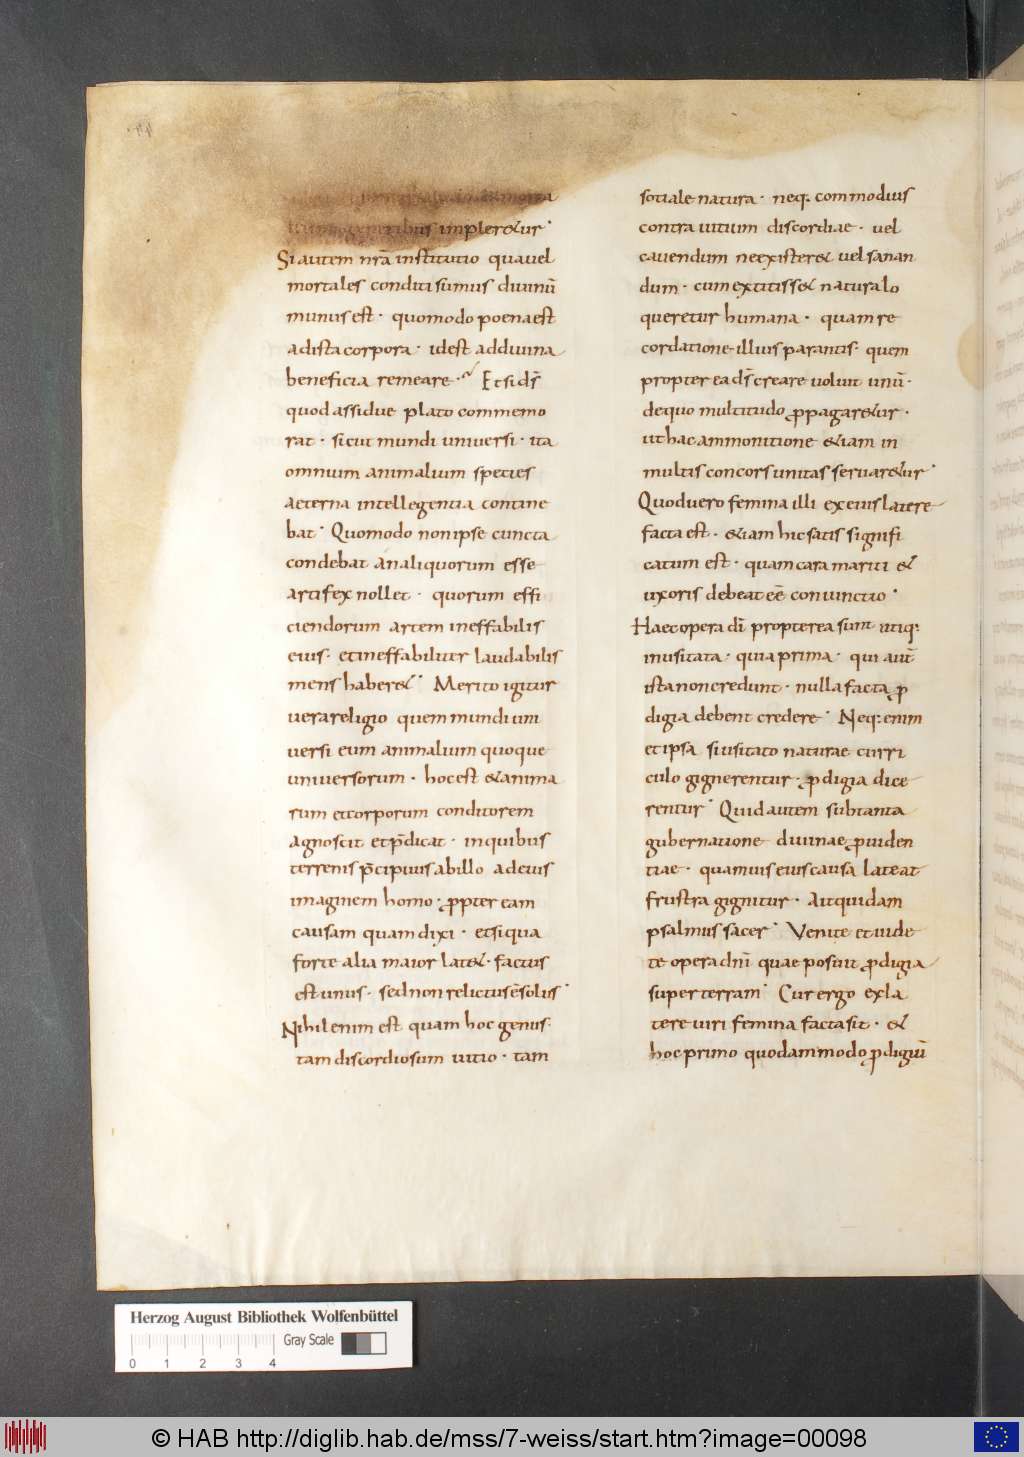 implereтur·
Si autem nr̄a institutio quauel
mortales conditi sumus diuinū
munus est· quomodo poena est
ad ista corpora· idest ad diuina
beneficia remeare· Et si ds̄
quod assidue plato commemo
rat· sicut mundi uniuersi· ita
omnium animalium species
aeterna intellegentia contine
bat· Quomodo non ipse cuncta
condebat an aliquorum esse
artifex nollet· quorum effi
ciendorum artem ineffabilis
eius· et ineffabiliter laudabilis
mens haber&· Merito igitur
uera religio quem mundi uni
uersi eum animalium quoque
uniuersorum· hoc est & anima
rum et corporum conditorem
agnoscit et p̄dicat· in quibus
terrenis p̄cipuus ab illo ad eius
imaginem homo· ꝓpter eam
causam quam dixi· et si qua
forte alia maior lat&· factus
est unus· sed non relictus ē solus·
Nihil enim est quam hoc genus·
tam discordiosum uitio· tam
sotiale natura· neq; commodius
contra uitium discordiae· uel
cauendum ne exister& uel sanan
dum· cum extitiss& natura lo
queretur humana· quam re
cordatione illius parentis· quem
propterea ds̄ creare uoluit unū·
de quo multitudo ꝓpagar&ur·
ut hac ammonitione &iam in
multis concors unitas seruar&ur·
Quod uero femina illi ex eius latere
facta est· &iam hic satis signifi
catum est· quam cara mariti &
uxoris debeat eē coniunctio·
Haec opera dī propterea sunt utiq;
inusitata· quia prima· qui aut̄
ista non credunt· nulla facta ꝓ
digia debent credere· Neq; enim
et ipsa si usitato naturae curri
culo gignerentur· ꝓdigia dice
rentur· Quid autem sub tanta
gubernatione diuinae ꝓuiden
tiae· quamuis eius causa lateat
frustra gignitur· Ait quidam
psalmus sacer· Venite et uide
te opera dnī quae posuit ꝓdigia
super terram· Cur ergo ex la
tere uiri femina facta sit· &
hoc primo quodammodo ꝓdigiū
Herzog August Bibliothek Wolfenbüttel
Gray Scale
0 1 2 3 4
© HAB http://diglib.hab.de/mss/7-weiss/start.htm?image=00098